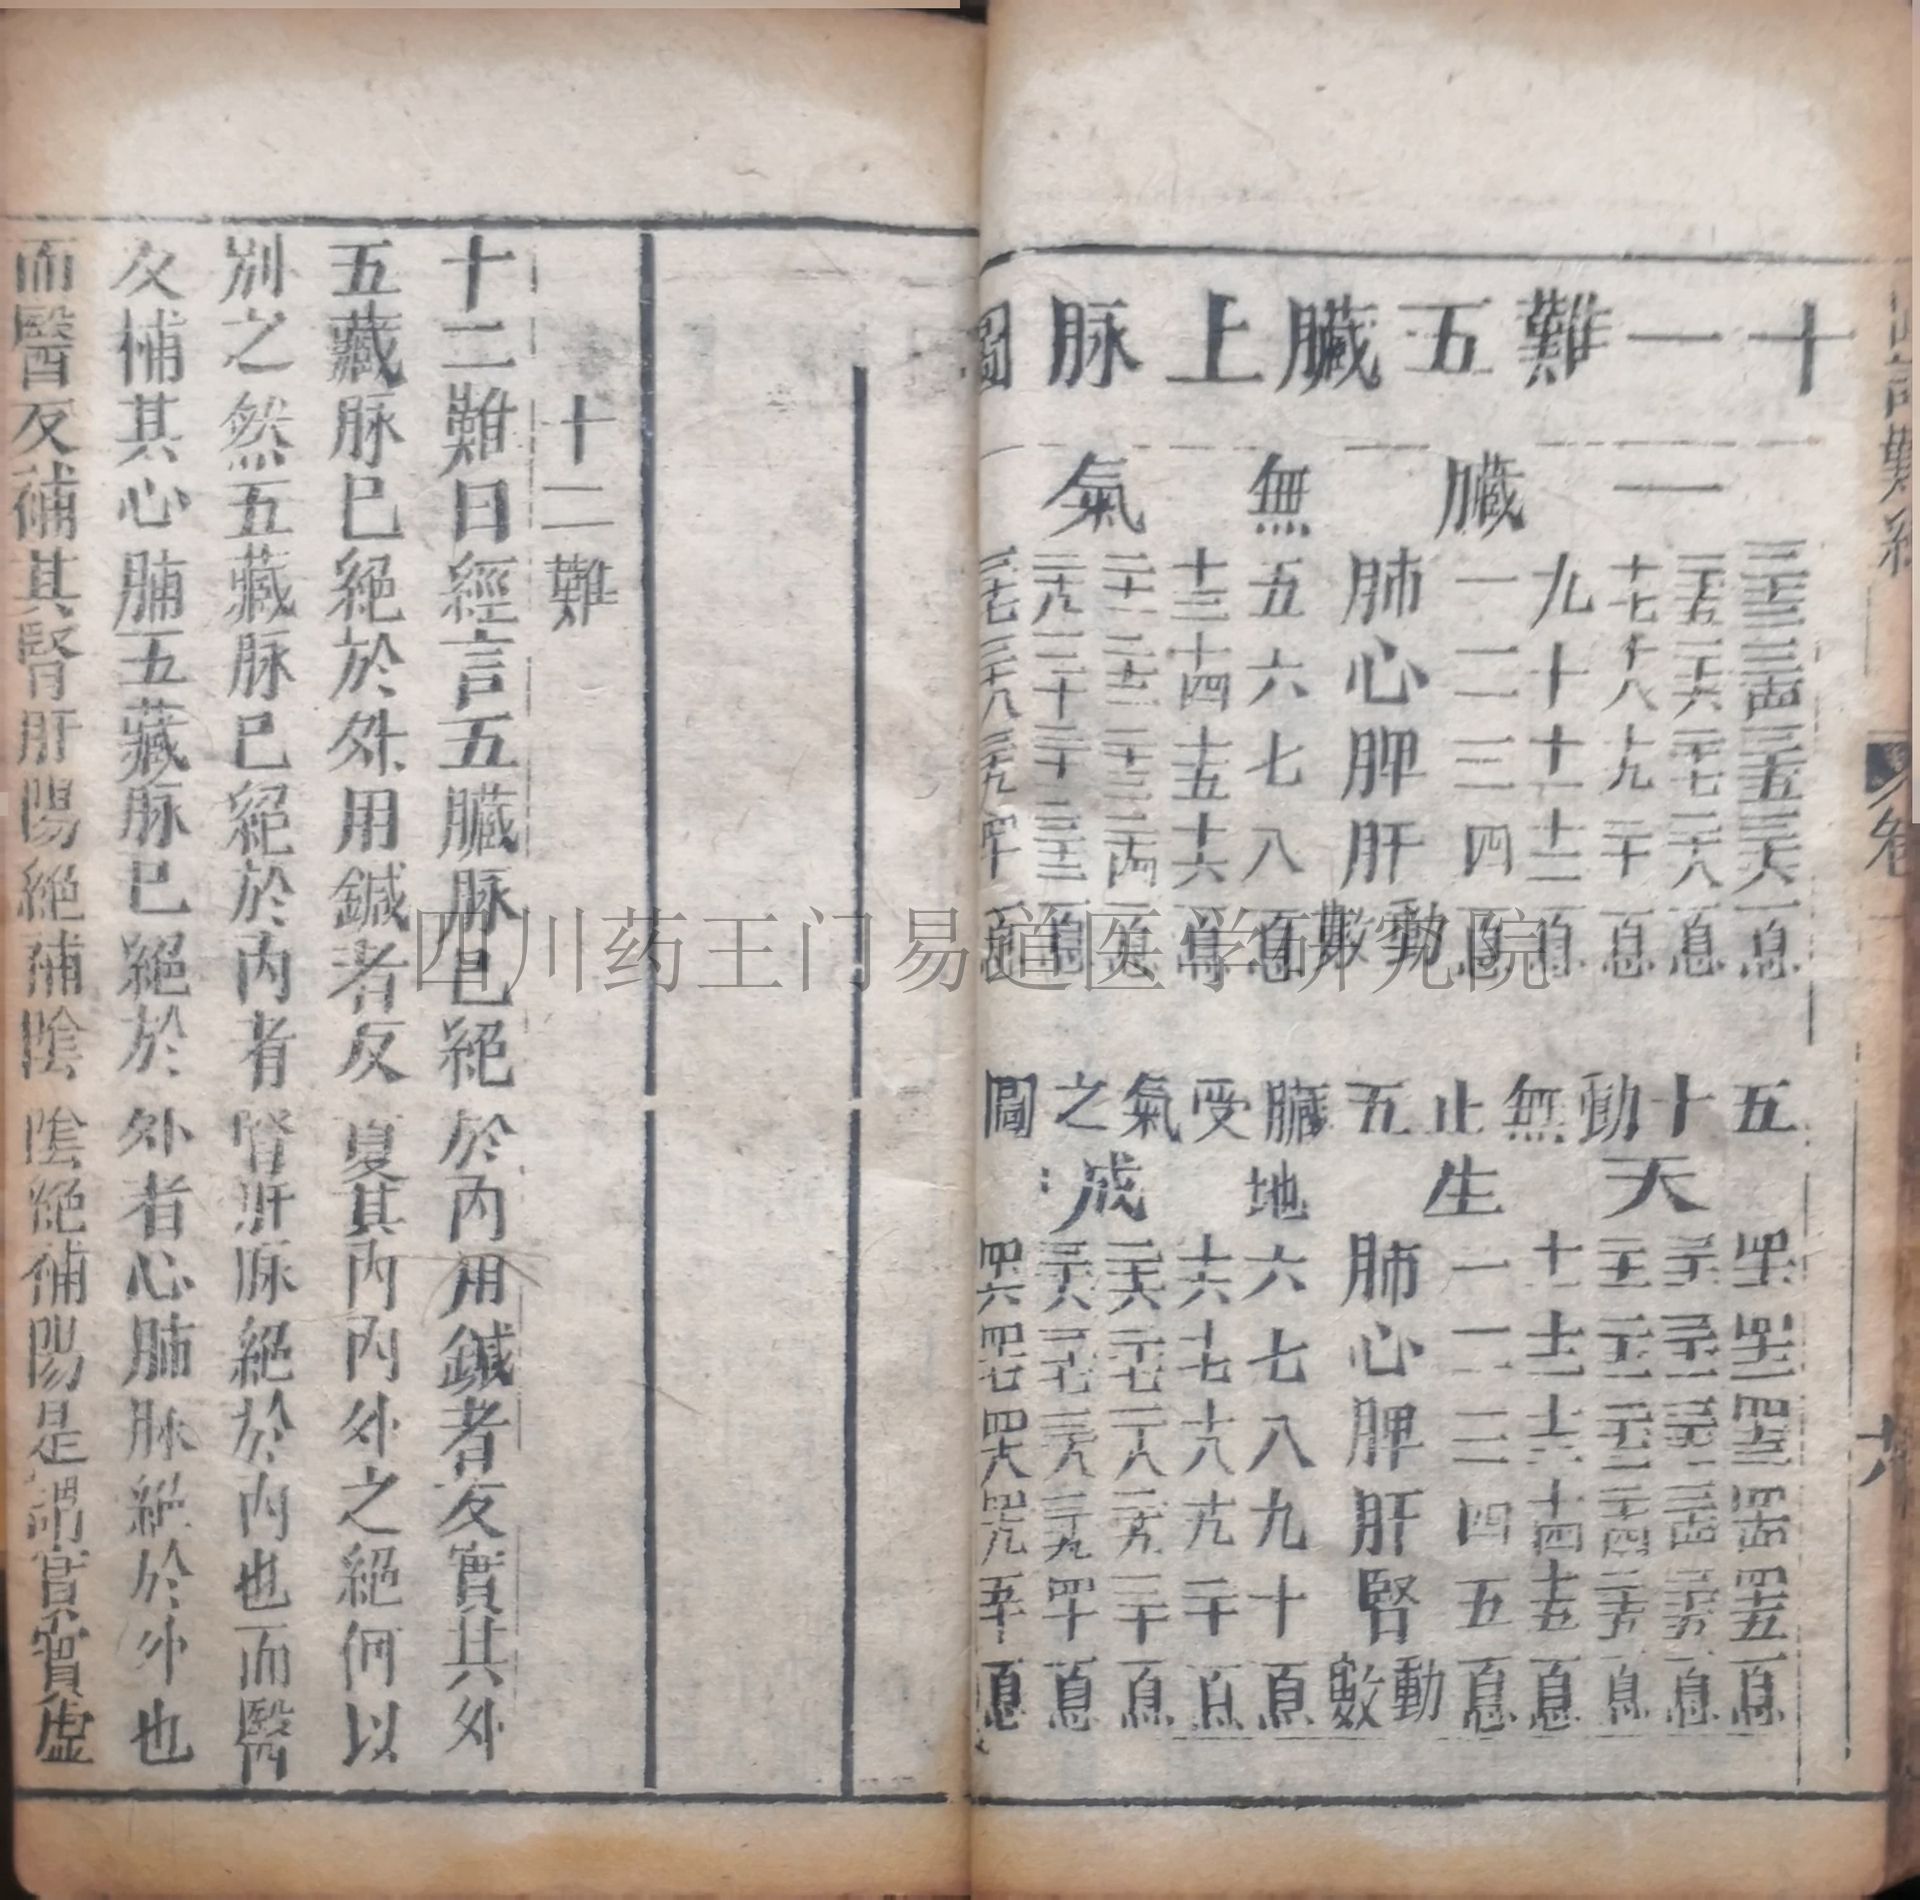 十一難五臟上脉圖
一臟無氣
三十三三十四三十五三十六息
二十五二十六二十七二十八息
十七十八十九二十息
九十十一十二息
一二三四息
肺心脾肝動數
五六七八息
十三十四十五十六息
二十一二十二二十三二十四息
二十九三十三十一三十二息
三十七三十八三十九四十息
五十動無止五臟受氣之圖
天生地成
四十一四十二四十三四十四四十五息
三十一三十二三十三三十四三十五息
二十一二十二二十三二十四二十五息
十一十二十三十四十五息
一二三四五息
肺心脾肝腎動數
六七八九十息
十六十七十八十九二十息
二十六二十七二十八二十九三十息
三十六三十七三十八三十九四十息
四十六四十七四十八四十九五十息
難經
卷
十二難
十二難曰經言五臟脉已絕於內用鍼者反實其外
五藏脉已絕於外用鍼者反實其內內外之絕何以
別之然五藏脉已絕於內者腎肝脉絕於內也而醫
反補其心肺五藏脉已絕於外者心肺脉絕於外也
而醫反補其腎肝陽絕補陰陰絕補陽是謂實實虛
四川药王门易道医学研究院